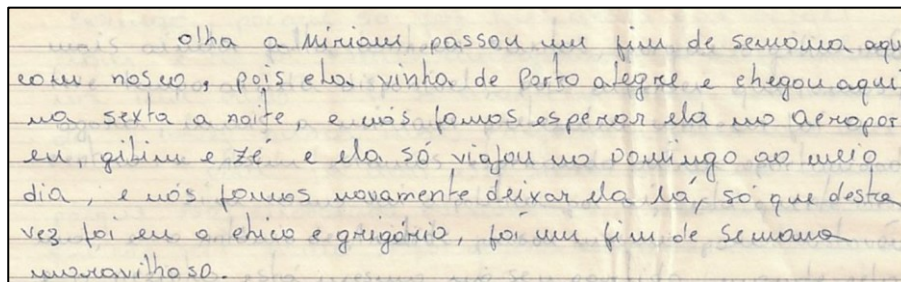 olha a Miriam passou um fim de semana aqu
com nosco, pois ela vinha de Porto alegre e chegou aqui
na sexta a noite, e nós fomos esperar ela no Aeropor
eu, gibim e Zé e ela só viajou no Domingo ao meio
dia, e nós fomos novamente deixar ela lá, só que desta
vez foi eu o chico e grigório, foi um fim de semana
maravilhoso.